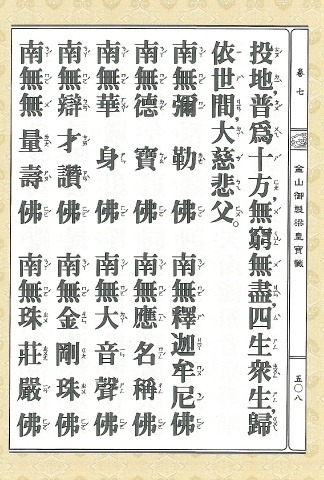 卷七
金山御製梁皇寶懺
五〇八
投地,普為十方,無窮無盡,四生眾生,歸
依世間,大慈悲父。
南無彌勒佛
南無釋迦牟尼佛
南無德寶佛
南無應名稱佛
南無華身佛
南無大音聲佛
南無辯才讚佛
南無金剛珠佛
南無無量壽佛
南無珠莊嚴佛